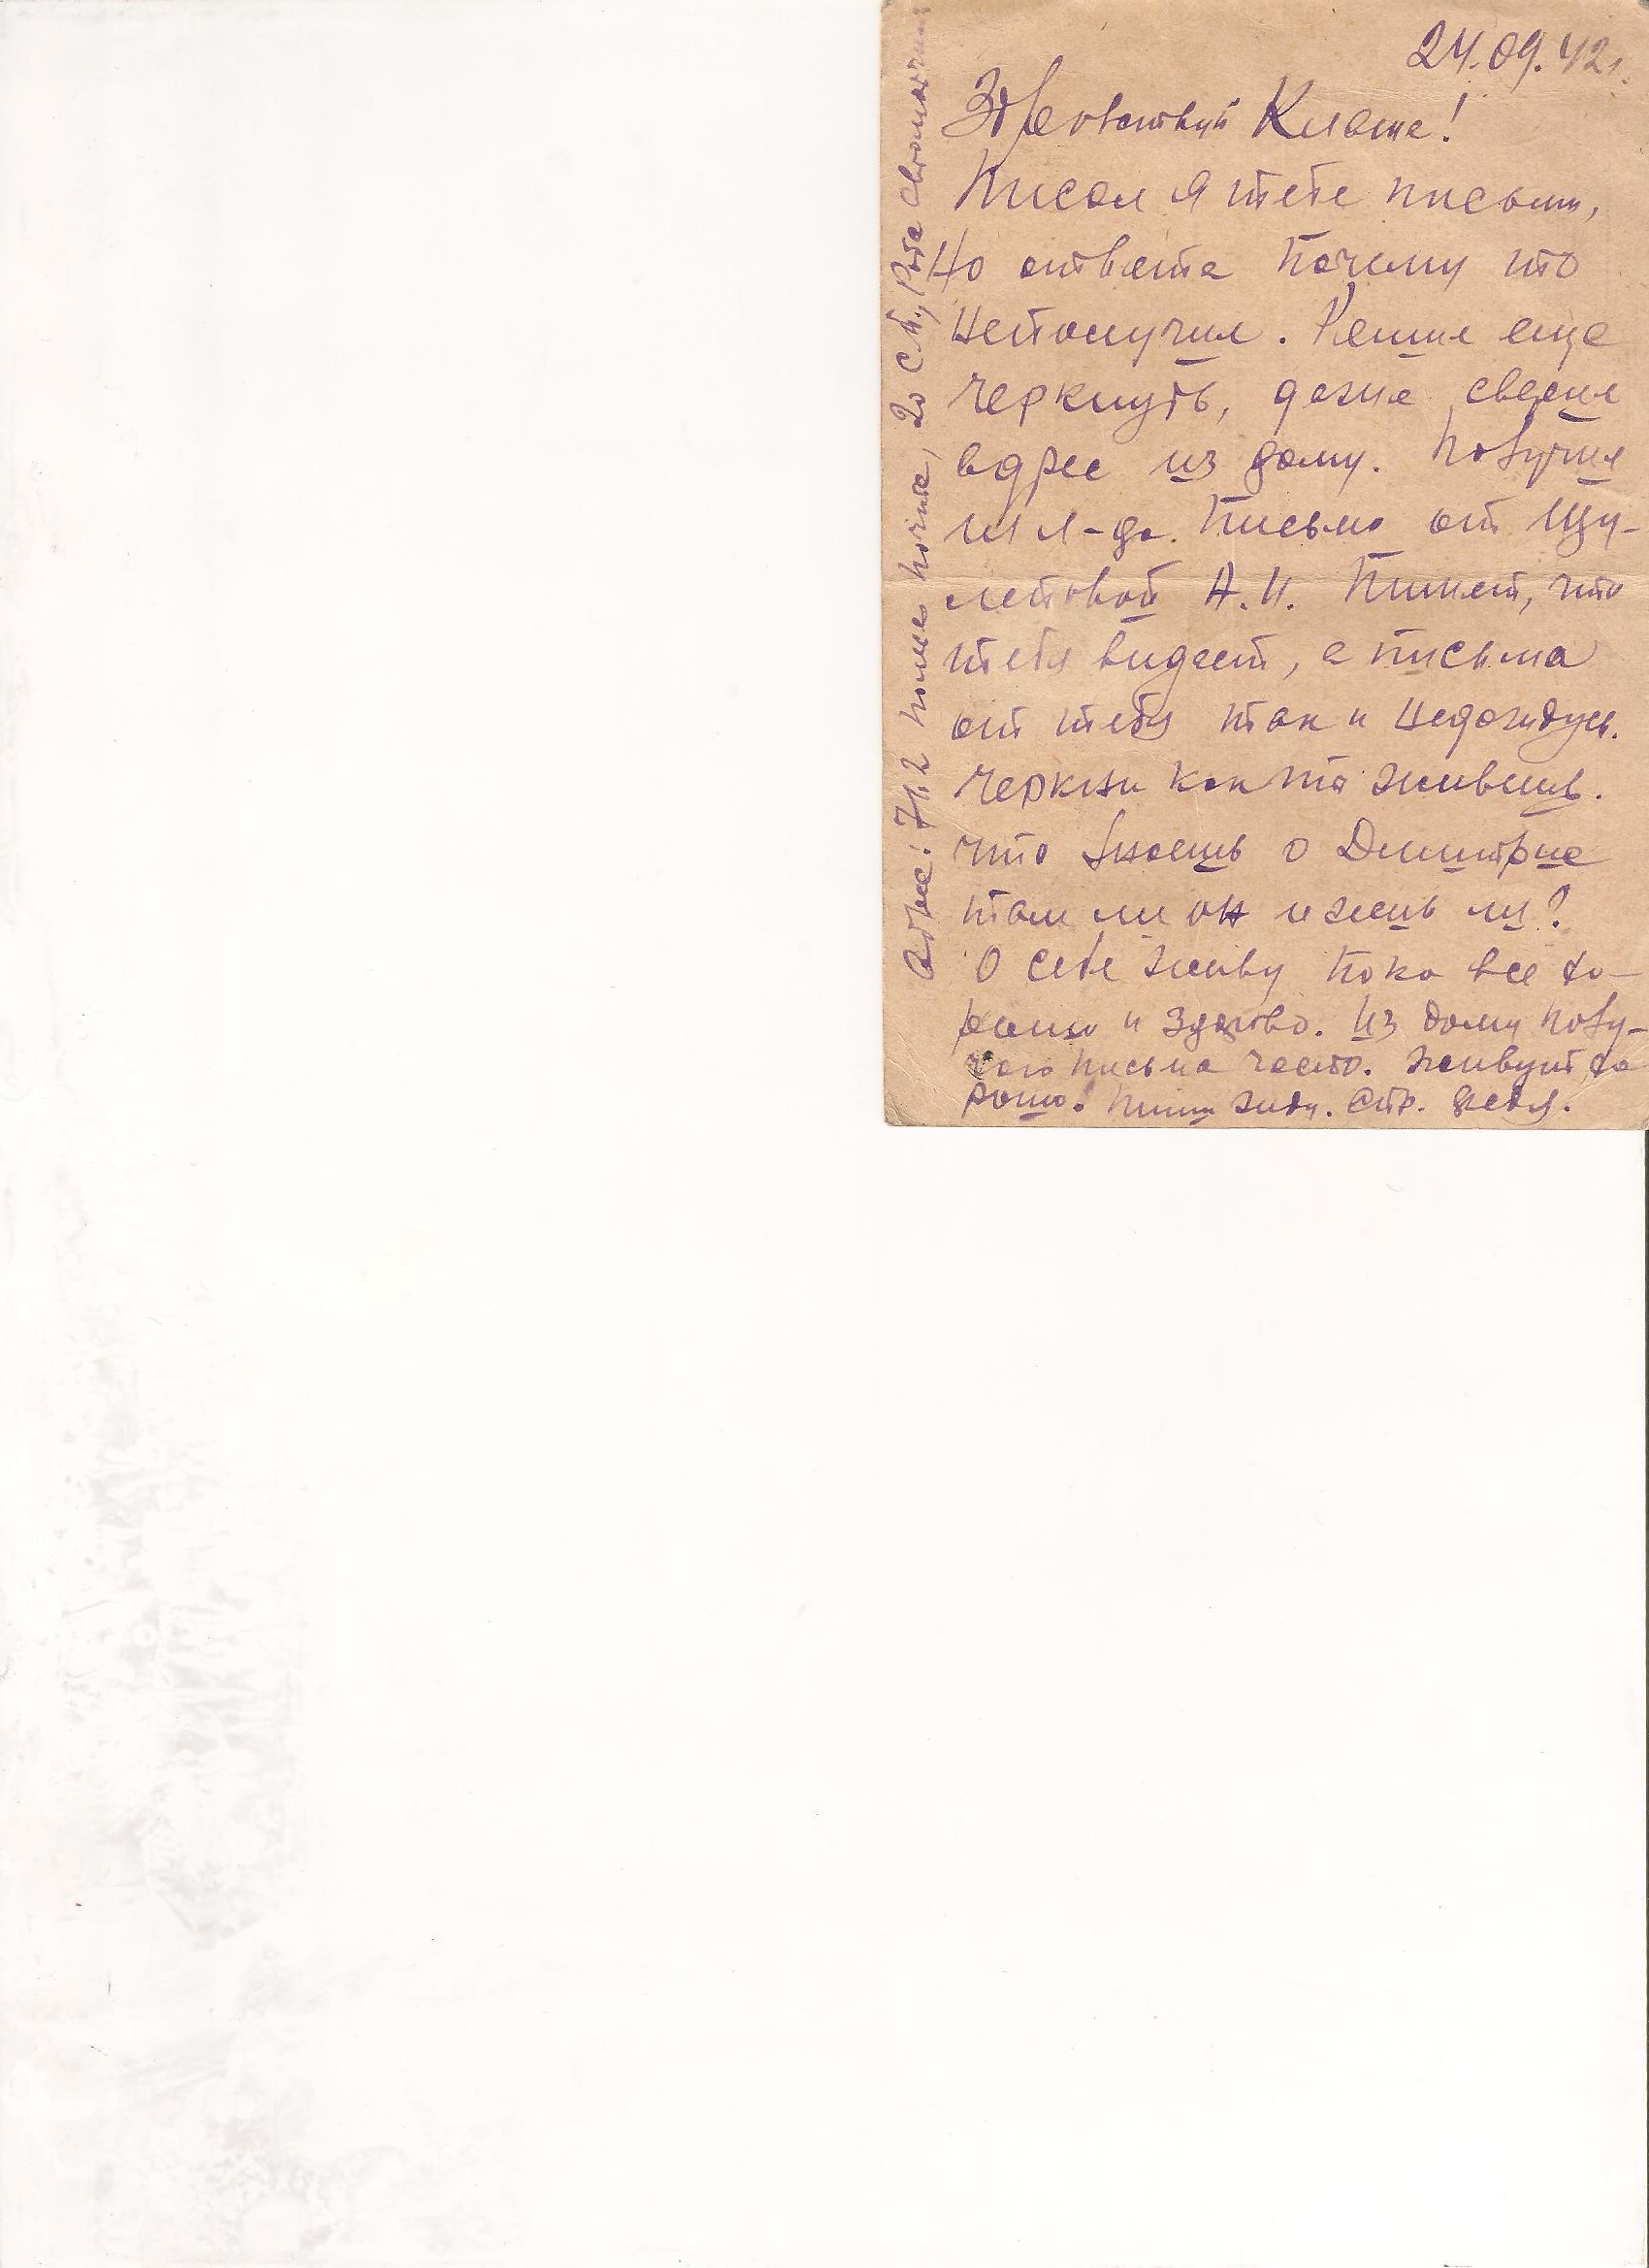 24.09.42г.
Здравствуй Клаша!
Писал я тебе письмо,
Но ответа почему то
неполучил. Решил еще
черкнуть, даже сверил
адрес из дому. Получил
из л-да. письмо от Щу-
летовой А.И. Пишет, что
тебя видает, а письма
от тебя так и недождусь.
черкни как то живешь.
что знаешь о Дмитрие
там ли он и жив ли?
О себе живу пока все хо-
рошо и здорово. Из дому полу-
чаю письма часто. живут хо
рошо. пиши жду. Федя.
Адрес: 712 полев почта, 20 с.п., Рота автоматчик